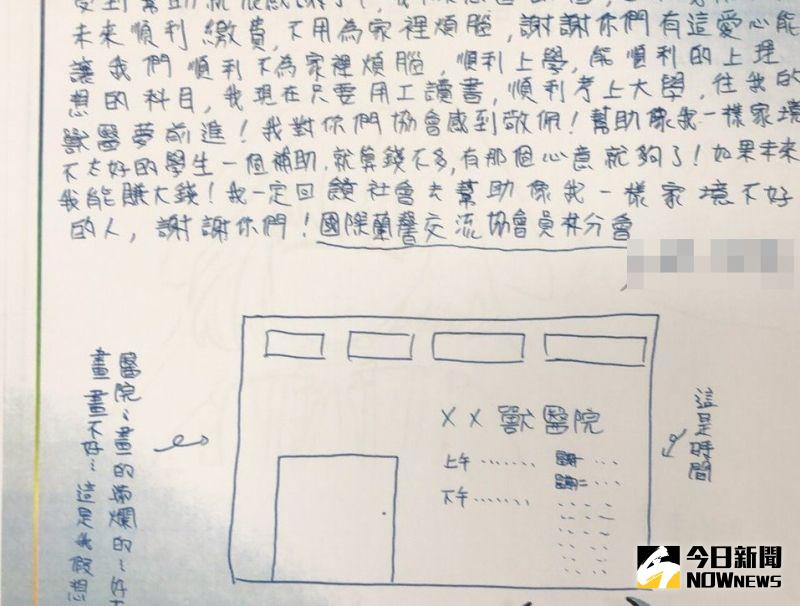 未來順利繳費，不用為家裡煩腦，謝謝你們有這愛心能
讓我們順利不為家裡煩腦，順利上學，能順利的上理
想的科目，我現在只要用工讀書，順利考上大學，往我的
獸醫夢前進！我對你們協會感到敬佩！幫助像我一樣家境
不太好的學生一個補助，就算錢不多，有那個心意就夠了！如果未來
我能賺大錢！我一定回饋社會去幫助像我一樣家境不好
的人，謝謝你們！國際蘭馨交流協會員林分會
XX獸醫院
上午.......
下午.......
這是時間
醫院、畫的蠻爛的~
畫畫不好…這是我假想
今日新聞
NOWnews